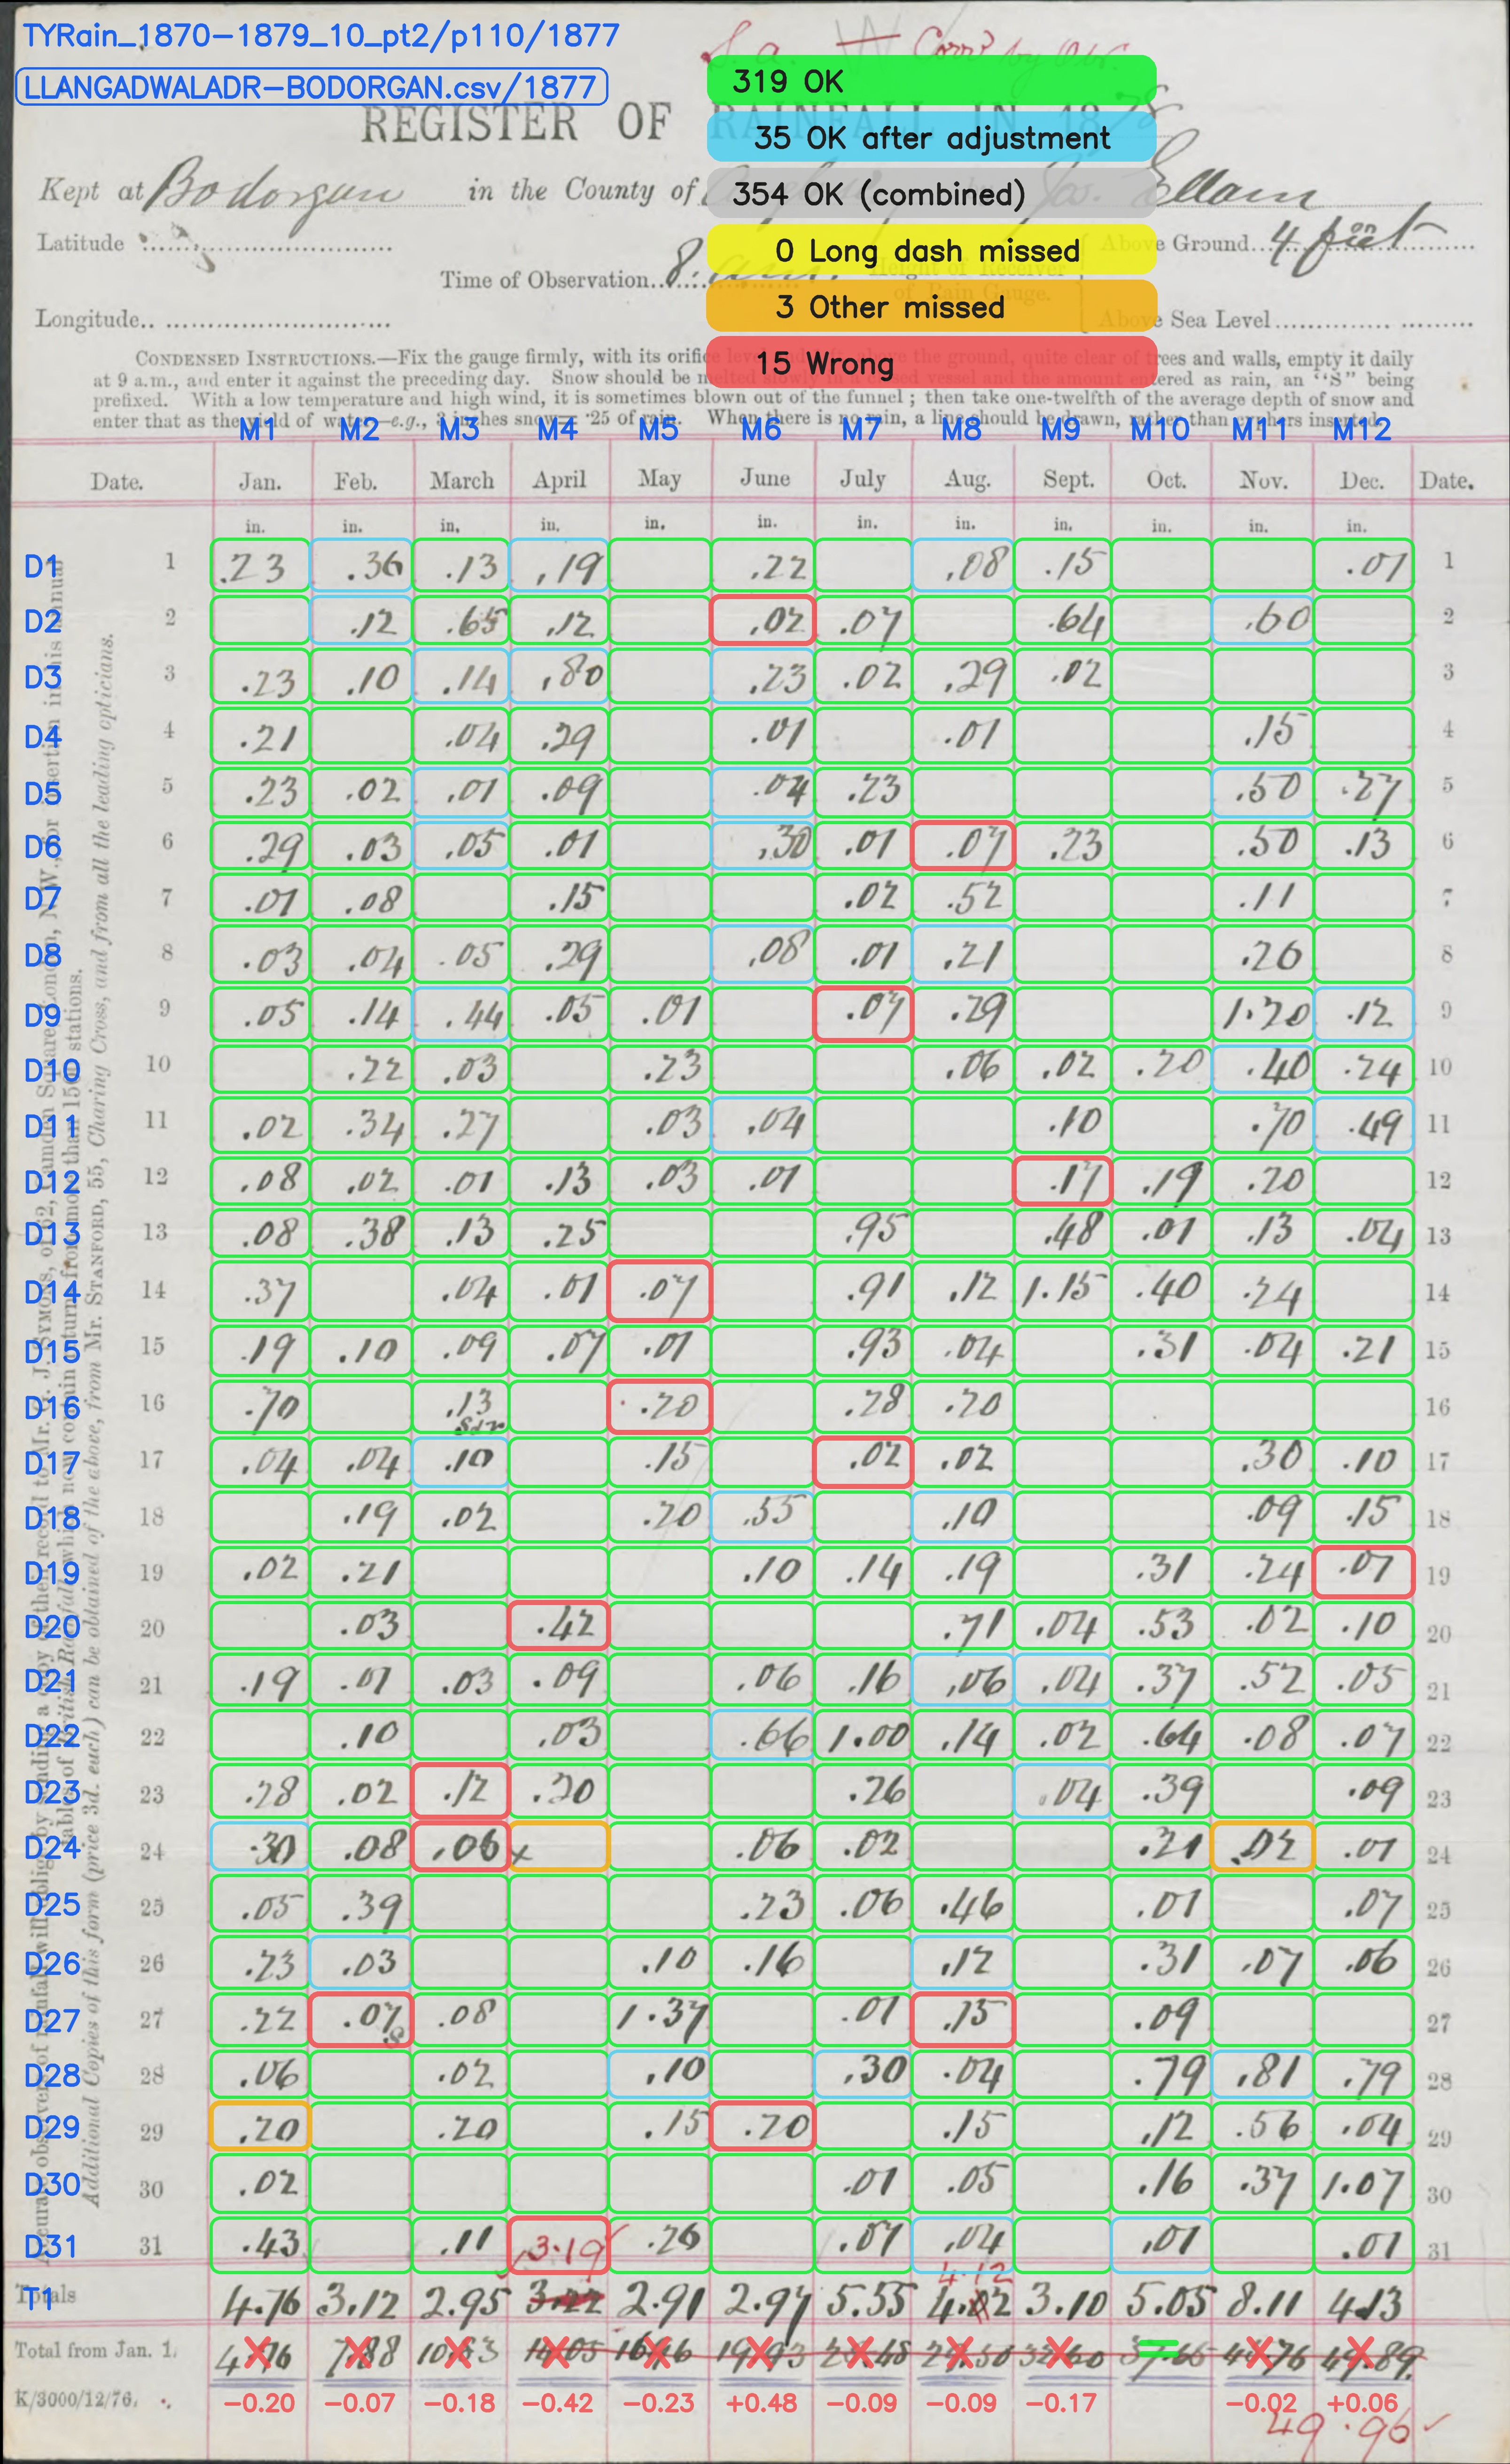 TYRain_1870-1879_10_pt2/p110/1877
LLANGADWALADR-BODORGAN.csv/1877
S.a. Corrd by Obr.
319 OK
35 OK after adjustment
354 OK (combined)
0 Long dash missed
3 Other missed
15 Wrong
REGISTER OF RAINFALL IN 1878
Kept at Bodorgan in the County of Jos. Ellam
Latitude
Time of Observation 8. a.m. Height of Receiver of Rain Gauge. Above Ground 4 feet
Longitude Above Sea Level
CONDENSED INSTRUCTIONS.—Fix the gauge firmly, with its orifice level the ground, quite clear of trees and walls, empty it daily
at 9 a.m., and enter it against the preceding day. Snow should be melted slowly vessel and the amount entered as rain, an "S" being
prefixed. With a low temperature and high wind, it is sometimes blown out of the funnel; then take one-twelfth of the average depth of snow and
enter that as the yield of water—e.g., 3 inches snow = ·25 of rain. When there is no rain, a line should be drawn, rather than cyphers inserted.
M1 M2 M3 M4 M5 M6 M7 M8 M9 M10 M11 M12
Date. Jan. Feb. March April May June July Aug. Sept. Oct. Nov. Dec. Date.
in. in. in. in. in. in. in. in. in. in. in. in.
D1 1 .23 .36 .13 .19 .22 .08 .15 .01 1
D2 2 .12 .65 .12 .02 .07 .64 .60 2
D3 3 .23 .10 .14 .80 .23 .02 .29 .02 3
D4 4 .21 .04 .29 .01 .01 .15 4
D5 5 .23 .02 .01 .09 .04 .23 .50 .27 5
D6 6 .29 .03 .05 .01 .30 .01 .07 .23 .50 .13 6
D7 7 .01 .08 .15 .02 .52 .11 7
D8 8 .03 .04 .05 .29 .08 .01 .21 .26 8
D9 9 .05 .14 .44 .05 .01 .07 .29 1.20 .12 9
D10 10 .22 .03 .23 .06 .02 .20 .40 .24 10
D11 11 .02 .34 .27 .03 .04 .10 .70 .49 11
D12 12 .08 .02 .01 .13 .03 .01 .17 .19 .20 12
D13 13 .08 .38 .13 .25 .95 .48 .01 .13 .04 13
D14 14 .37 .04 .01 .07 .91 .12 1.15 .40 .24 14
D15 15 .19 .10 .09 .07 .01 .93 .04 .31 .04 .21 15
D16 16 .70 .13 .20 .28 .20 16
D17 17 .04 .04 .10 .15 .02 .02 .30 .10 17
D18 18 .19 .02 .20 .55 .10 .09 .15 18
D19 19 .02 .21 .10 .14 .19 .31 .24 .07 19
D20 20 .03 .42 .71 .04 .53 .02 .10 20
D21 21 .19 .01 .03 .09 .06 .16 .06 .04 .37 .52 .05 21
D22 22 .10 .03 .66 1.00 .14 .02 .64 .08 .07 22
D23 23 .28 .02 .12 .20 .26 .04 .39 .09 23
D24 24 .30 .08 .06 x .06 .02 .21 .02 .01 24
D25 25 .05 .39 .23 .06 .46 .01 .07 25
D26 26 .23 .03 .10 .16 .12 .31 .07 .06 26
D27 27 .22 .07 s .08 1.37 .01 .15 .09 27
D28 28 .06 .02 .10 .30 .04 .79 .81 .79 28
D29 29 .20 .20 .15 .20 .15 .12 .56 .04 29
D30 30 .02 .01 .05 .16 .37 1.07 30
D31 31 .43 .11 3.19 .26 .07 .04 .01 .01 31
4.12
T1 Totals 4.76 3.12 2.95 3.22 2.91 2.97 5.55 4.02 3.10 5.05 8.11 4.13
Total from Jan. 1. 4.76 7.88 10.83 14.05 16.96 19.93 25.48 29.50 32.60 37.65 45.76 49.89
K/3000/12/76. -0.20 -0.07 -0.18 -0.42 -0.23 +0.48 -0.09 -0.09 -0.17 -0.02 +0.06
49.96
Additional Copies of this form (price 3d. each) can be obtained of the above, from Mr. STANFORD, 55, Charing Cross, and from all the leading opticians.